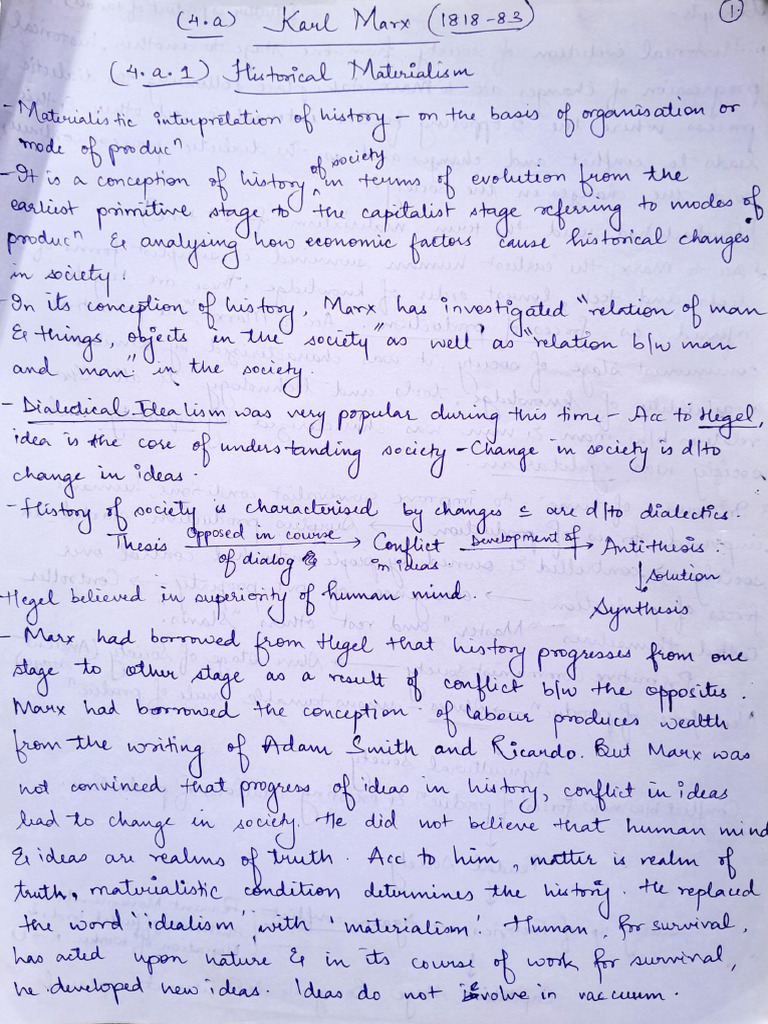 (4.a) Karl Marx (1818-83)
1.
(4.a.1) Historical Materialism
- Materialistic interpretation of history - on the basis of organisation or
mode of producⁿ
- It is a conception of history ^of society in terms of evolution from the
earliest primitive stage to the capitalist stage referring to modes of
producⁿ & analysing how economic factors cause historical changes
in society.
- In its conception of history, Marx has investigated "relation of man
& things, objects in the society" as well as "relation b/w man
and man" in the society.
- Dialectical Idealism was very popular during this time - Acc to Hegel,
idea is the core of understanding society - Change in society is d/to
change in ideas.
- History of society is characterised by changes c are d/to dialectics.
Thesis Opposed in course of dialog → Conflict in ideas Development of → Antithesis.
↓ solution
Hegel believed in superiority of human mind. Synthesis
- Marx had borrowed from Hegel that history progresses from one
stage to other stage as a result of conflict b/w the opposites.
Marx had borrowed the conception of labour produces wealth
from the writing of Adam Smith and Ricardo. But Marx was
not convinced that progress of ideas in history, conflict in ideas
lead to change in society. He did not believe that human mind
& ideas are realms of truth. Acc to him, matter is realm of
truth, materialistic condition determines the history. He replaced
the word 'idealism' with 'materialism'. Human, for survival,
has acted upon nature & in its course of work for survival,
he developed new ideas. Ideas do not evolve in vaccuum.